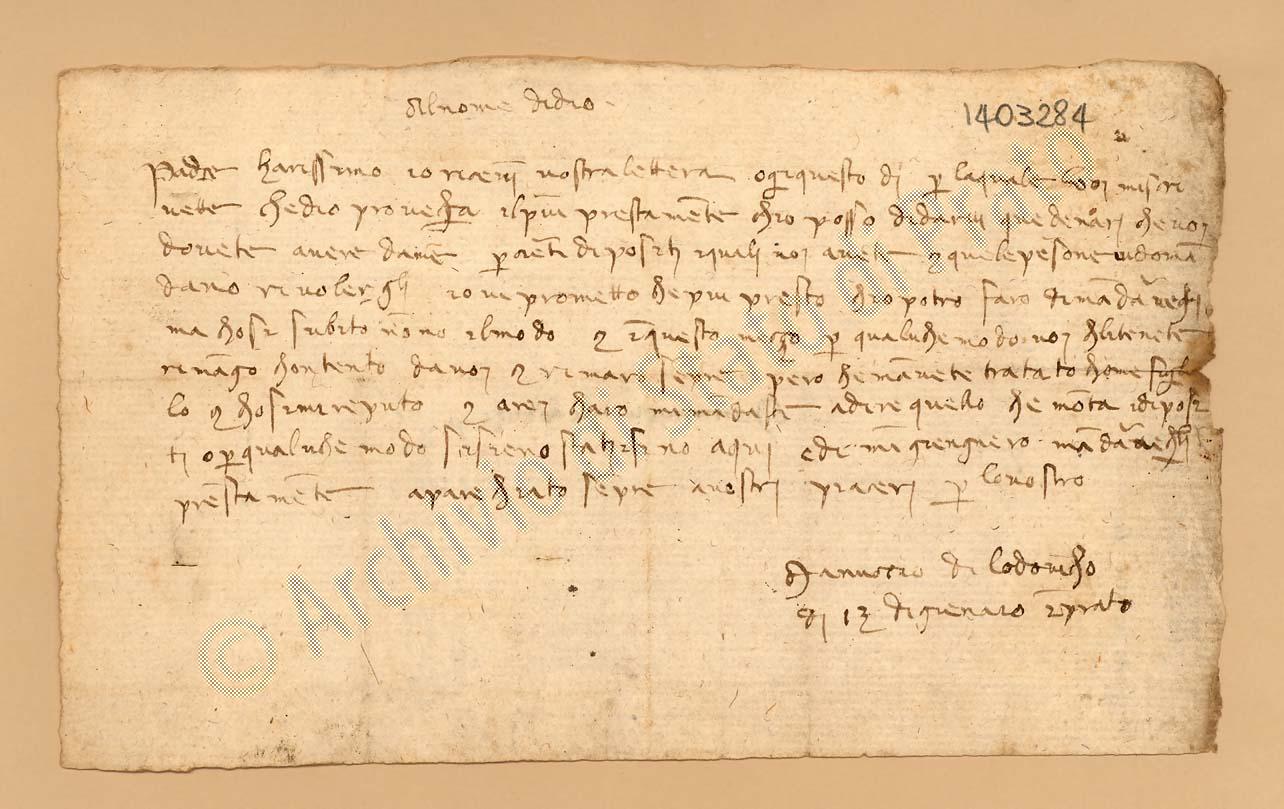 Al nome di dio
1403284
Padreharissimo io ricevj vostra lettera oggi questo dj per la quale voi mi scri
vette che dio provegha il più prestamente ch io posso di darvi que denarj che voj
dovete avere da me per ciertj diposit i qualj voj avete e que le persone vi doman
dano rivolerglj io vi prometto he piu presto ch io potro faro di mandarveglj
ma hosi subito nonno il modo e in questo mezo per qualuche modo voj gli tenete
rimango hontento da voj e rimaro sepre pero he mavete tratato home figl
lo e hosi mi reputo e arej haro mi mandaste a dire quello he monta i diposi
ti o per qualuche modo si sieno statj sino a quj e de ma gienguero mandaraveglj
prestamente aparechiato sepre a vostrj piacerj per lo vostro
Vanuccio di lodovicho
dj 13 di gienaro in prato
© Archivio di Stato di Prato